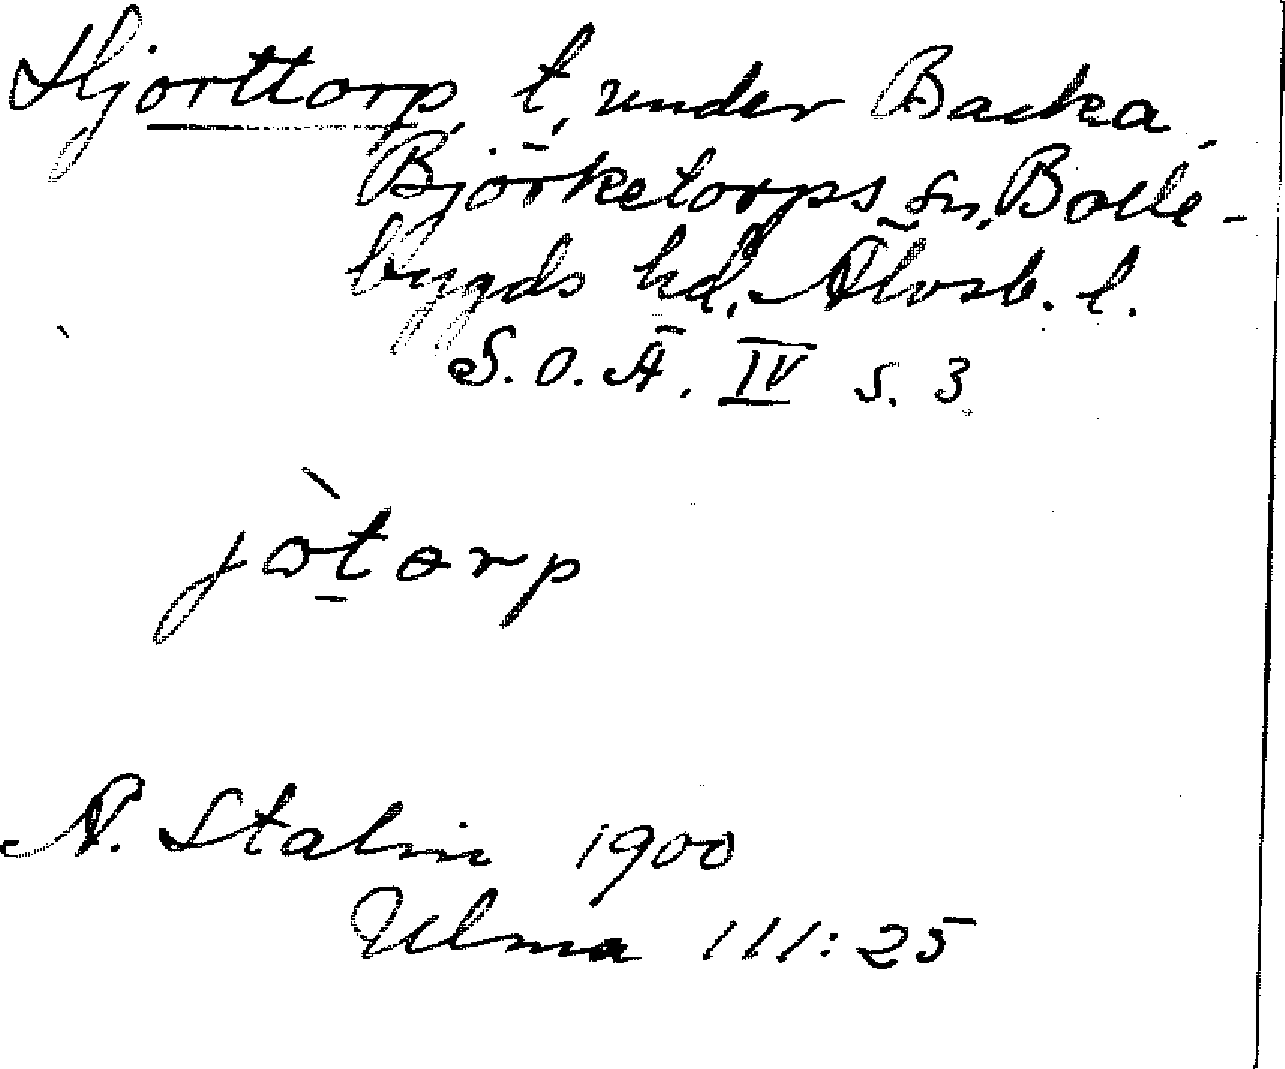 Hjorttorp, t, under Backa,
Björketorps sn, Bolle-
bygds hd, Älvsb. l.
S.O.Ä. IV s. 3
jòtorp
A. Stalin 1900
Ulma 111:25